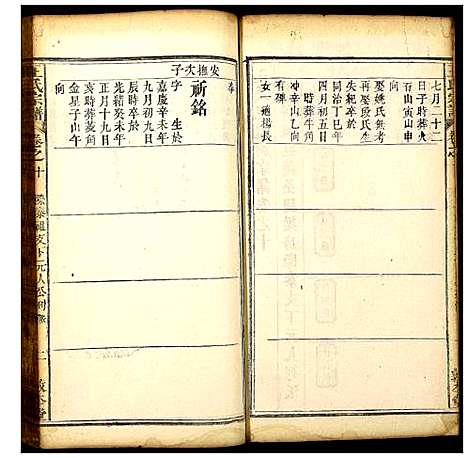 七月二十二
日子時葬火
山寅山申
再娶姚氏無考
再娶段氏生
失紀卒於
同治丁巳年
四月初五日
丑時葬牛角
沖辛山乙向
有碑
女一適楊長
安撫次子
祈銘
字 生於
嘉慶辛未年
九月初九日
辰時卒於
光緒癸未年
正月十九日
亥時葬菱角
金星子山午
向
王氏宗譜
卷之十